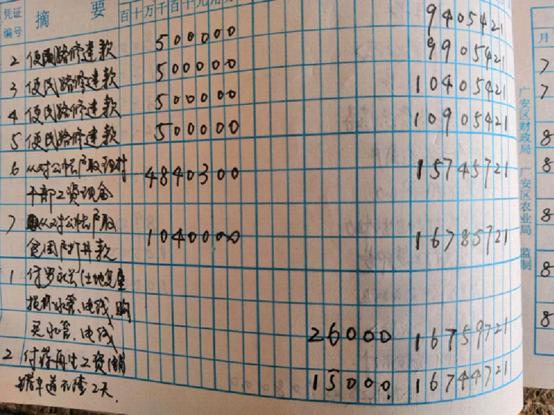 凭证编号 摘要 百十万千百十元角分
9405421
2 便民路修建款 500000 9905421
3 便民路修建款 500000 10405421
4 便民路修建款 500000 10905421
5 便民路修建款 500000
6 从对公帐户取 村 4840300 15745721
干部工资现金
7 从对公帐户取 1040000 16785721
款
1 付罗
水管、电线、购
买水管、电线 26000 16759721
2 付 工资
2天. 15000 16744721
月
7
7
8
8
8
8
8
广安区财政局 广安区农业局 监制